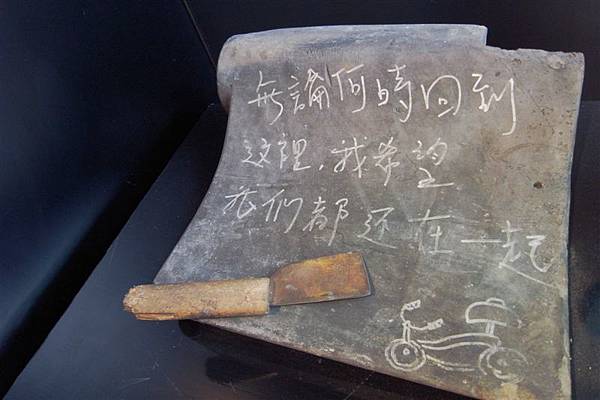 無論何時回到
这裡,我希望
我们都还在一起